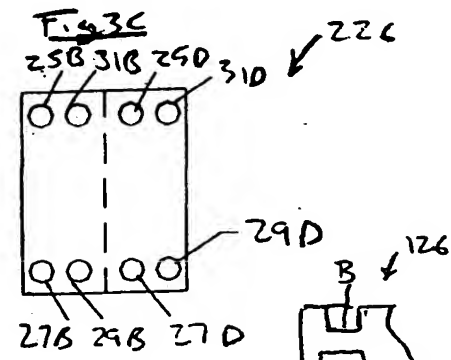 Fig 3C
226
25B 31B 25D 31D
29D
27B 29B 27D
B
126